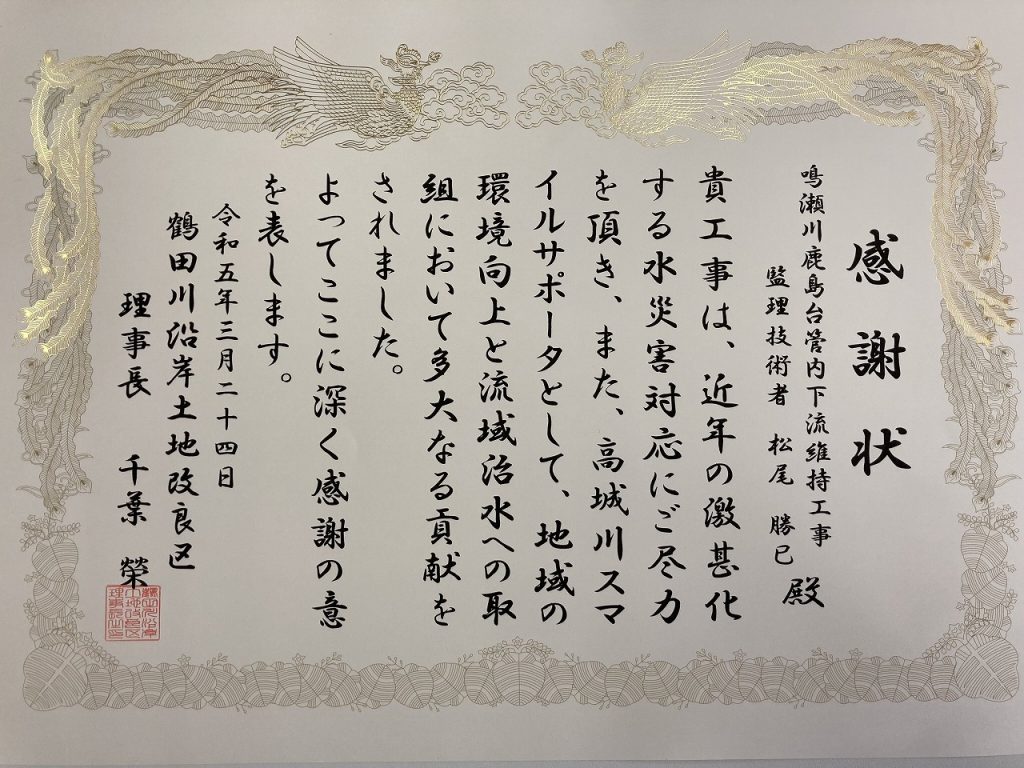 感謝状
鳴瀬川鹿島台管内下流維持工事
監理技術者 松尾 勝巳 殿
貴工事は、近年の激甚化
する水災害対応にご尽力
を頂き、また、高城川スマ
イルサポータとして、地域の
環境向上と流域治水への取
組において多大なる貢献を
されました。
よってここに深く感謝の意
を表します。
令和五年三月二十四日
鶴田川沿岸土地改良区
理事長 千葉 榮